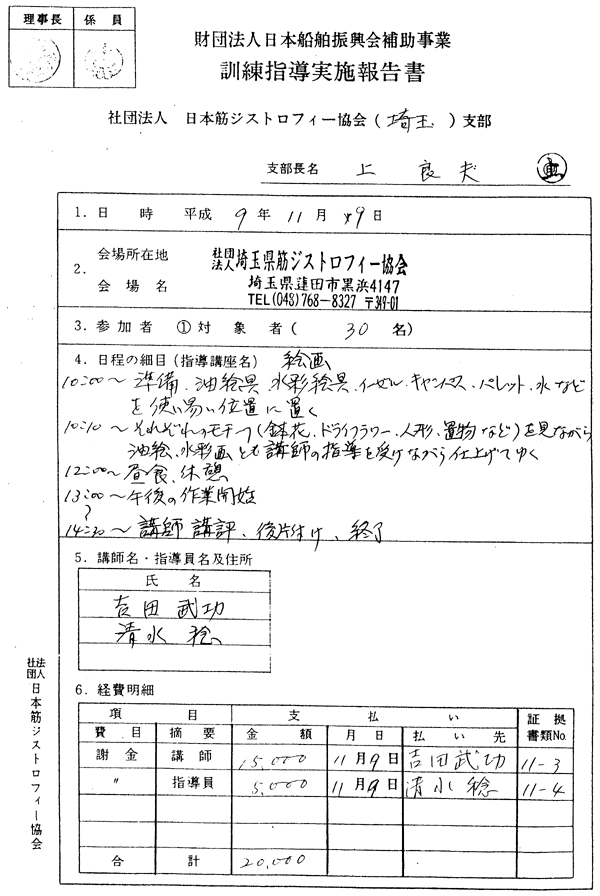 理事長 係員
財団法人日本船舶振興会補助事業
訓練指導実施報告書
社団法人 日本筋ジストロフィー協会(埼玉)支部
支部長名 上 良夫
1. 日 時 平成 9 年 11 月 9 日
2. 会場所在地
会場名
社団法人 埼玉県筋ジストロフィー協会
埼玉県蓮田市黒浜4147
TEL(048)768-8327 〒349-01
3. 参加者 ①対象者( 30 名)
4. 日程の細目(指導講座名) 絵画
10:00~ 準備、油絵具、水彩絵具、イーゼル、キャンバス、パレット、水など
を使い易い位置に置く
10:10~ それぞれのモチーフ(鉢花、ドライフラワー、人形、置物など)を見ながら
油絵、水彩画とも講師の指導を受けながら仕上げてゆく
12:00~ 昼食、休憩
13:00~ 午後の作業開始
14:30~ 講師講評、後片付け、終了
5. 講師名・指導員名及住所
氏名
吉田武功
清水稔
6. 経費明細
項目 支払い 証拠書類No.
費目 摘要 金額 月日 払い先
謝金 講師 15,000 11月9日 吉田武功 11-3
〃 指導員 5,000 11月9日 清水稔 11-4
合計 20,000
社団法人 日本筋ジストロフィー協会